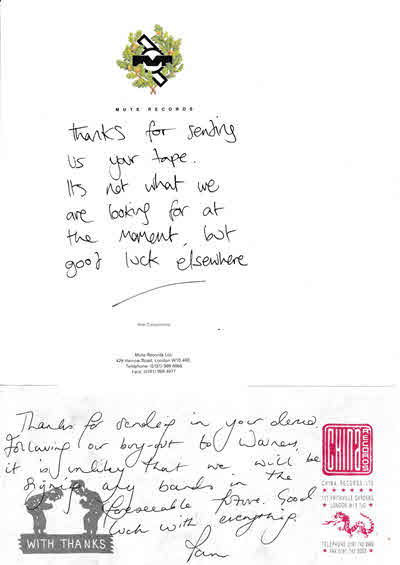 MUTE RECORDS
thanks for sending
us your tape.
Its not what we
are looking for at
the moment, but
good luck elsewhere
With Compliments
Mute Records Ltd.
429 Harrow Road, London W10 4RE.
Telephone: (0181)
Fax: (0181)
Thanks for sending in your demo.
Following our buy-out to Warners,
it is unlikely that we will be
signing any bands in the
foreseeable future. Good
luck with everything.
WITH THANKS
CHINA
RECORDS
CHINA RECORDS LTD
LONDON
TELEPHONE 0181
FAX 0181